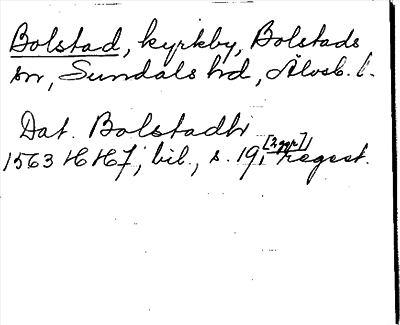 Bolstad, kyrkby, Bolstads
sn, Sundals hd, Älvsb. l.
Dat. Bolstadhi
[2 ggr]
1563 HH7, bil., s. 19, regest.